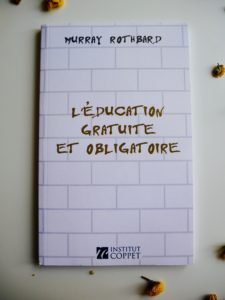 MURRAY ROTHBARD
L'ÉDUCATION
GRATUITE
ET OBLIGATOIRE
INSTITUT
COPPET